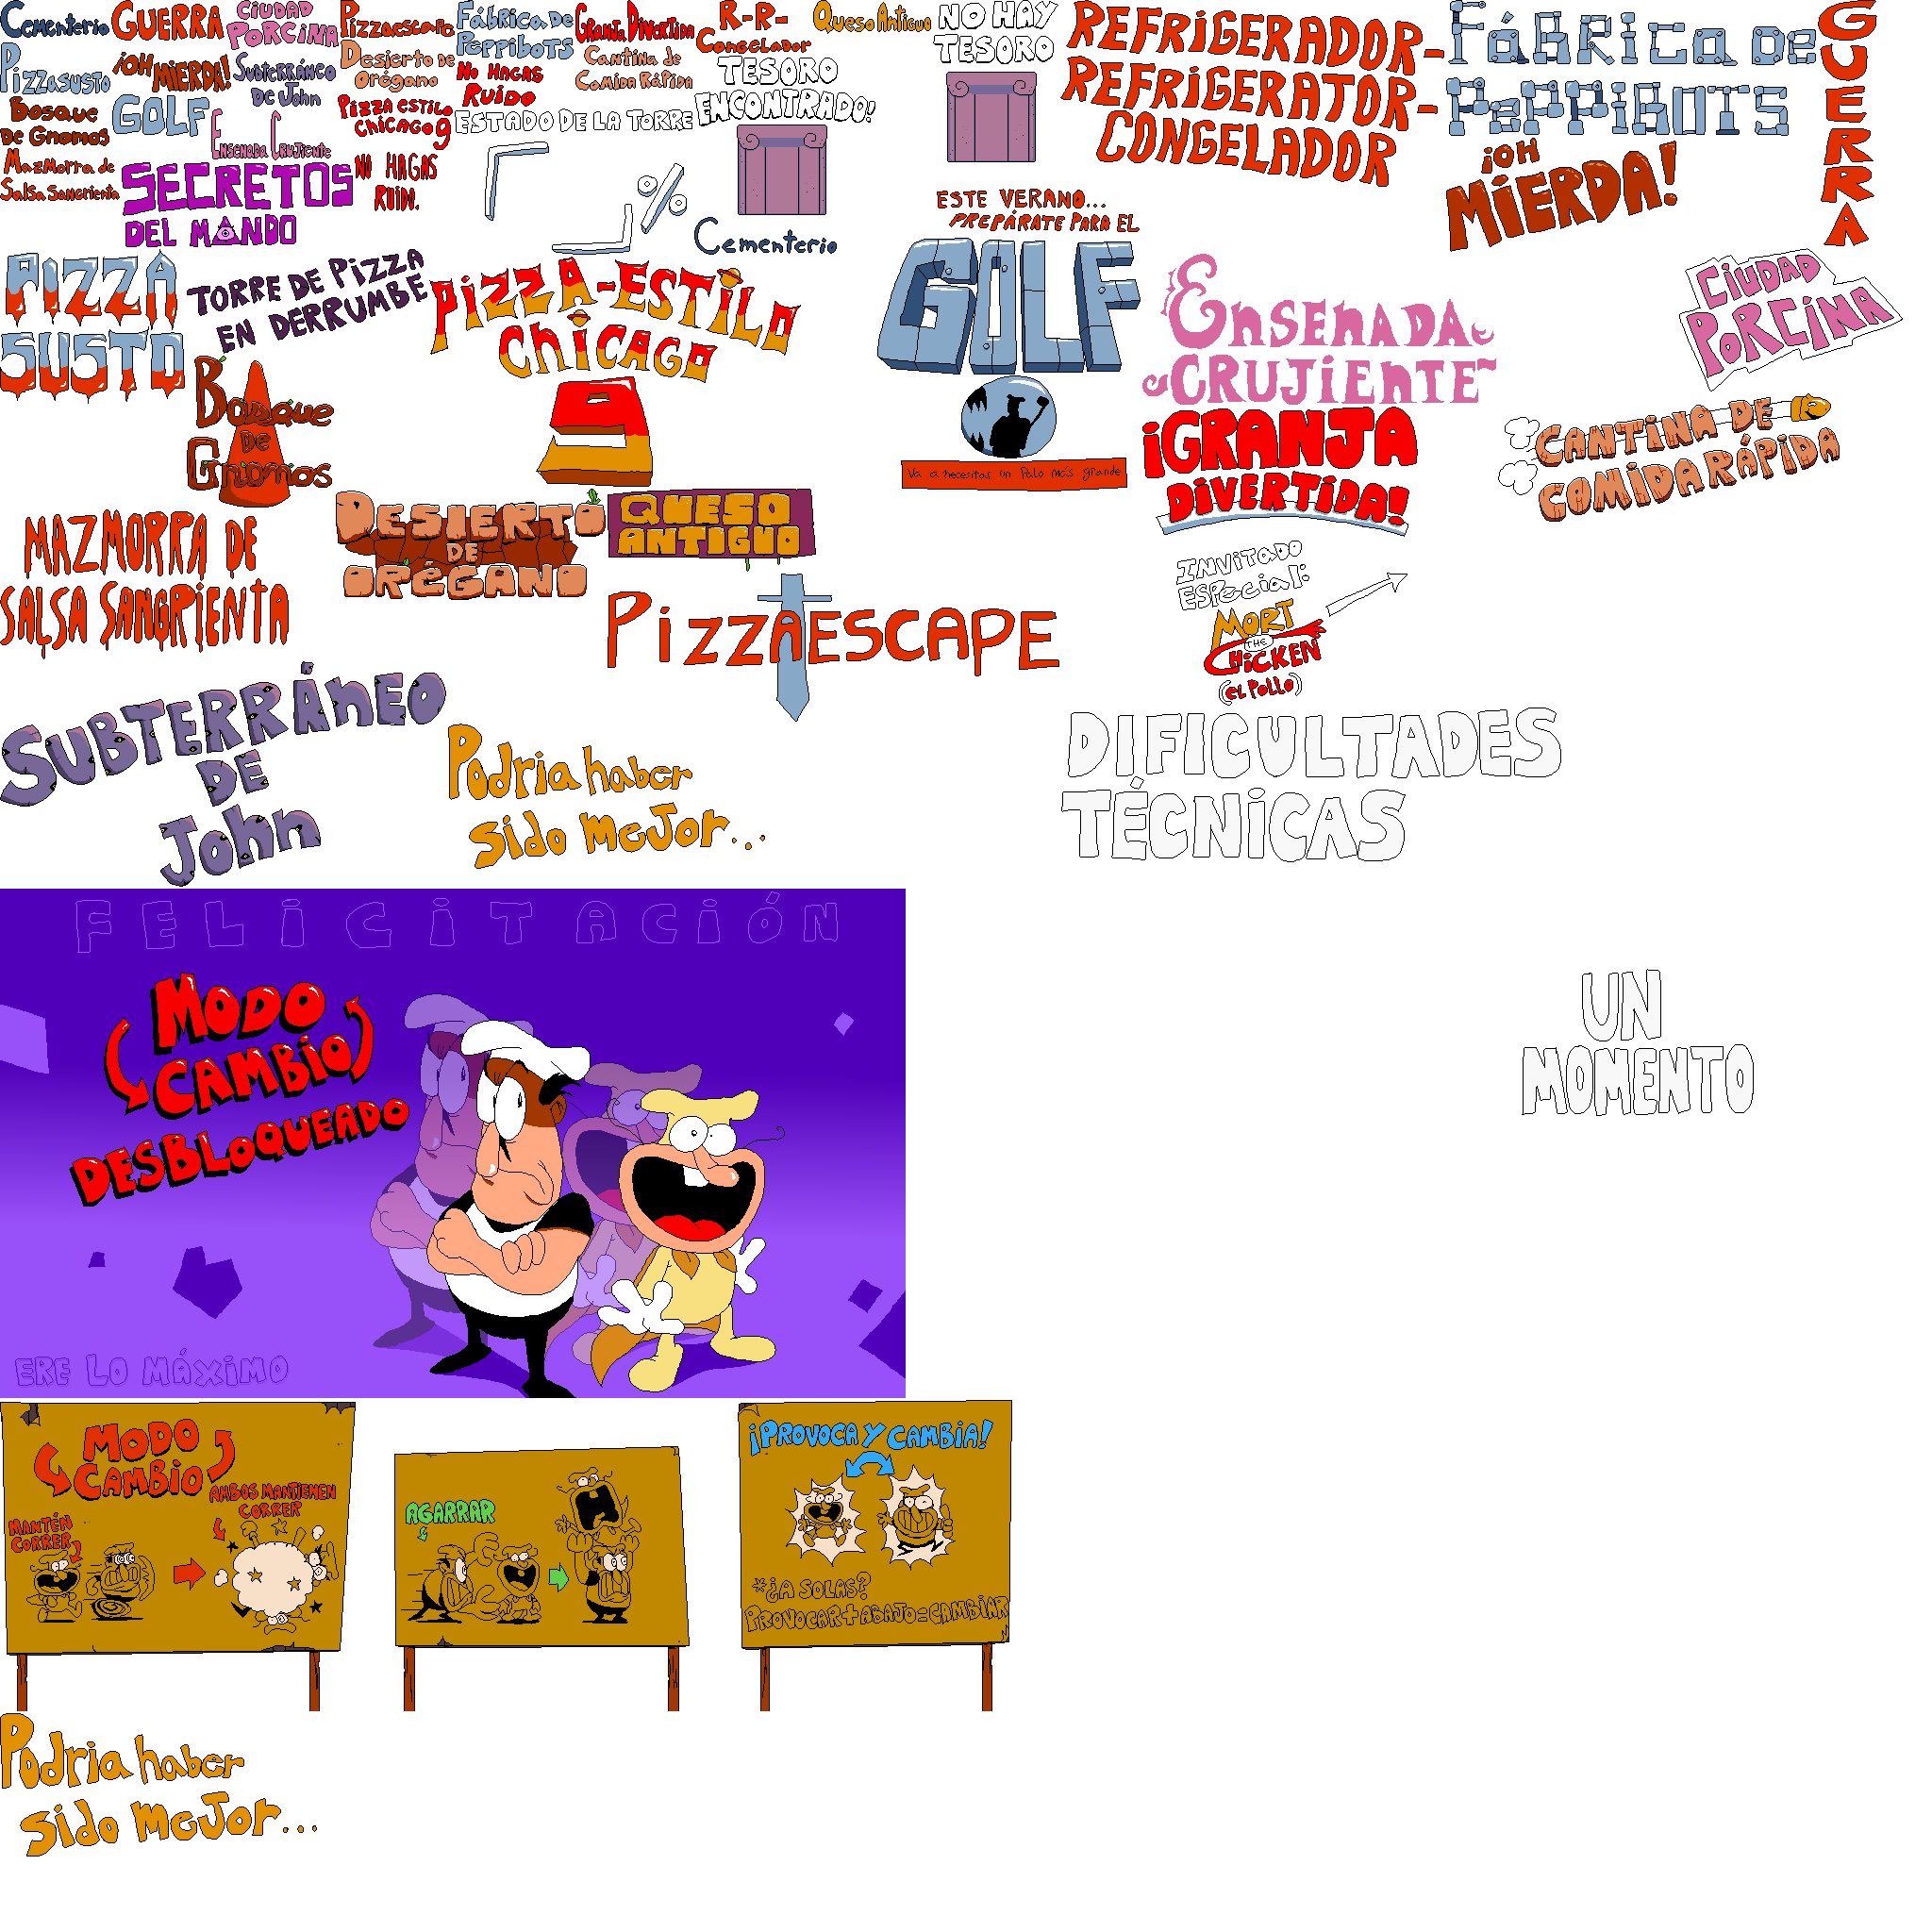 Cementerio
GUERRA
CIUDAD
PORCINA
Pizzaescape
Fábrica De
Peppibots
Granja Divertida
R-R-
Congelador
Queso Antiguo
NO HAY
TESORO
REFRIGERADOR-
REFRIGERATOR-
CONGELADOR
FÁBRICA DE
PEPPIBOTS
GUERRA
Pizzasusto
¡OH
MIERDA!
Subterráneo
De John
Desierto de
Orégano
No HAGAS
RUIDO
Cantina de
Comida Rápida
TESORO
ENCONTRADO!
Bosque
De Gnomos
GOLF
Ensenada Crujiente
Pizza estilo
Chicago 9
ESTADO DE LA TORRE
Mazmorra de
Salsa Sangrienta
SECRETOS
DEL MANDO
NO HAGAS
RUIDO.
%
Cementerio
ESTE VERANO...
PREPÁRATE PARA EL
GOLF
Va a necesitar un palo más grande
¡OH
MIERDA!
PIZZA
SUSTO
TORRE DE PIZZA
EN DERRUMBE
PIZZA-ESTILO
CHICAGO
9
ENSENADA
CRUJIENTE
CIUDAD
PORCINA
Bosque
De
Gnomos
¡GRANJA
DIVERTIDA!
CANTINA DE
COMIDA RÁPIDA
MAZMORRA DE
SALSA SANGRIENTA
DESIERTO
DE
ORÉGANO
QUESO
ANTIGUO
PizzAESCAPE
INVITADO
ESPECIAL:
MORT
THE
CHICKEN
(EL POLLO)
SUBTERRÁNEO
DE
John
Podria haber
sido mejor...
DIFICULTADES
TÉCNICAS
FELICITACIÓN
MODO
CAMBIO
DESBLOQUEADO
ERE LO MÁXIMO
UN
MOMENTO
MODO
CAMBIO
MANTÉN
CORRER
AMBOS MANTIENEN
CORRER
AGARRAR
¡PROVOCA Y CAMBIA!
*¿A SOLAS?
PROVOCAR+ABAJO=CAMBIAR
Podria haber
sido mejor...